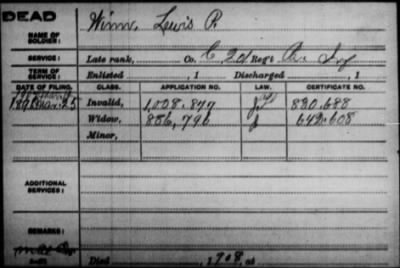 DEAD
NAME OF SOLDIER: Winn, Lewis P.
SERVICE: Late rank, Co. C, 20 Reg't Inf
TERM OF SERVICE: Enlisted , 1 Discharged , 1
DATE OF FILING. CLASS. APPLICATION NO. LAW. CERTIFICATE NO.
Invalid, 1,008.877 890.688
Widow, 886,796 642.608
Minor,
ADDITIONAL SERVICES:
REMARKS:
Died , 1908, at